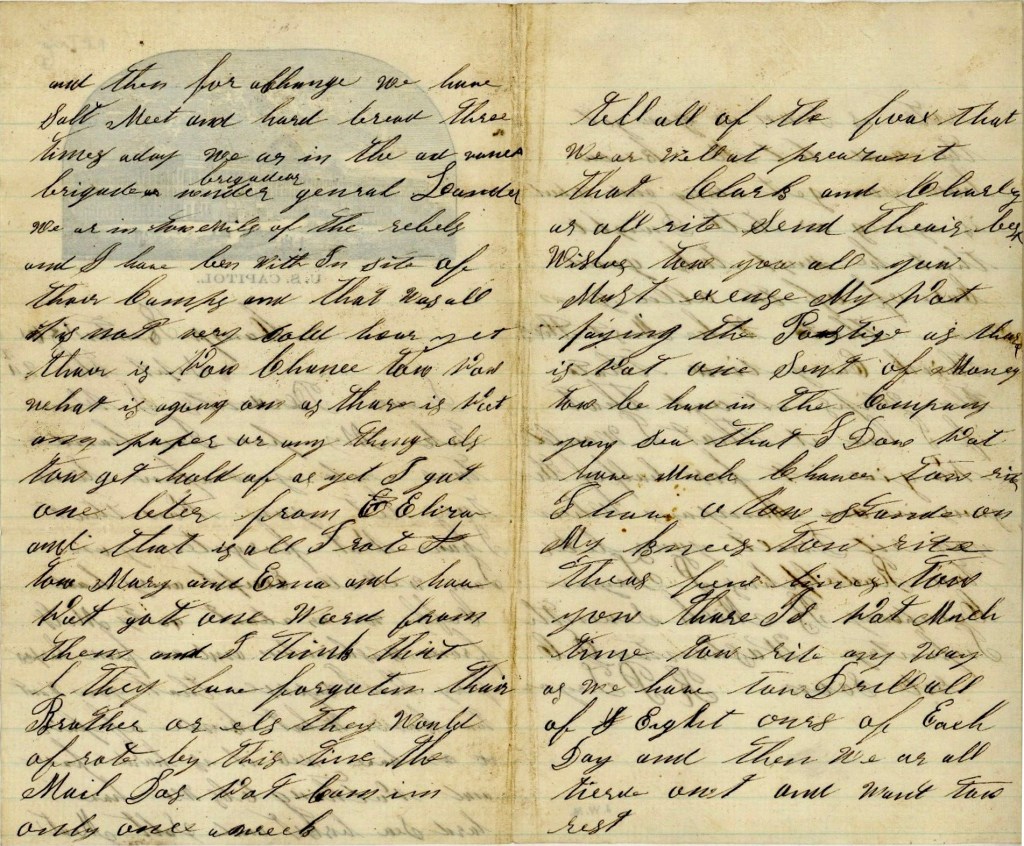 and then for a Change we have
Salt Meet and hard bread three
times a day we ar in the ad vance
brigade under brigadear genral Lander
we ar in tow Mils of the rebels
and I have ben with In site of
thair Camps and that was all
it is not very Cold hear yet
thair is Now Chance tow Now
what is agoing on as thare is Not
any paper or any thing els
tow get hold of as yet I got
one leter from E Eliza
and that is all I rote I
tow Mary and Ema and have
Not got one Word from
them and I think that
they have forgoten thair
Brother or els they Would
of rote by this time the
Mail Dos Not Cam in
only once a week
U.S. CAPITOL
tell all of the foax that
We ar Well at preasant
that Clark and Charley
ar all rite Send thair best
Wishes tow you all you
Must exenge My Not
paying the Postige as thare
is Not one Sent of Money
tow be had in the Company
you Sea that I Dow Not
have Much Chance tow rite
I have tow Stande on
My knees tow rite
theas few lines tow
you thare Is Not Much
time tow rite any way
as we have tow Drill all
of Eight ours of Each
Day and then We ar all
tierde out and want tow
rest